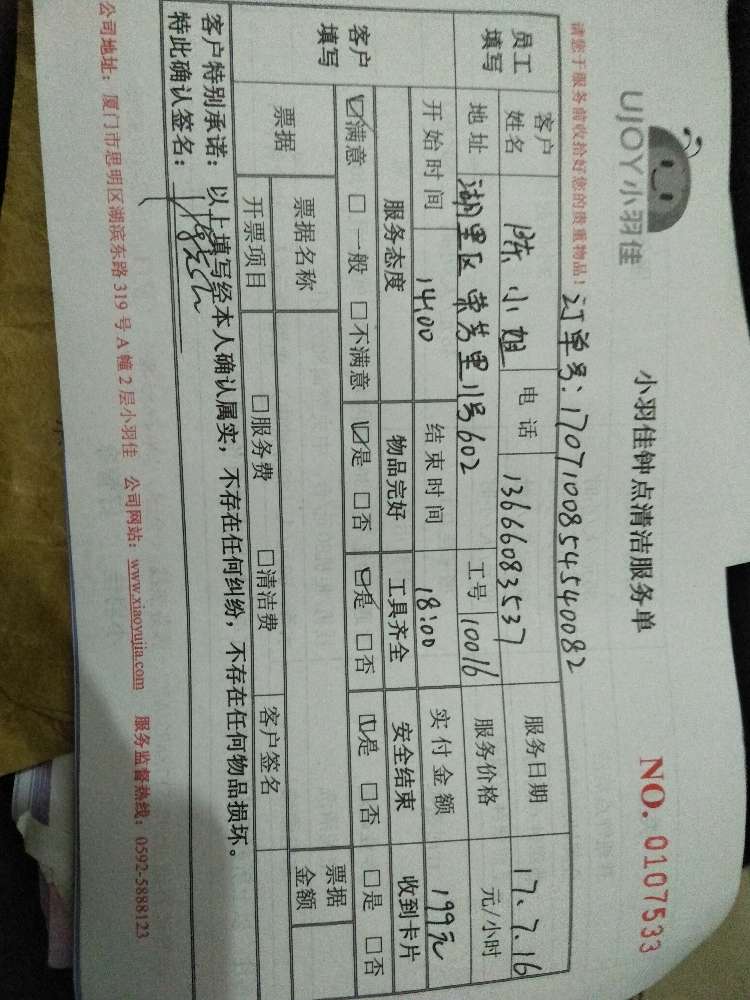 UJOY小羽佳
小羽佳钟点清洁服务单
NO. 0107533
请您于服务前收拾好您的贵重物品！
订单号：1707100854540082
员工填写
客户姓名 陈小姐 电话 13666083537 服务日期 17.7.16
地址 湖里区荣芳里11号602 工号 10016 服务价格 元/小时
开始时间 14:00 结束时间 18:00 实付金额 199元
客户填写
服务态度 物品完好 工具齐全 安全结束 收到卡片
☑满意 □一般 □不满意 ☑是 □否 ☑是 □否 ☑是 □否 □是 □否
票据 票据名称 票据金额
开票项目 □服务费 □清洁费 客户签名
客户特别承诺：以上填写经本人确认属实，不存在任何纠纷，不存在任何物品损坏。
特此确认签名：
公司地址：厦门市思明区湖滨东路319号A幢2层小羽佳 公司网站：www.xiaoyujia.com 服务监督热线：0592-5888123